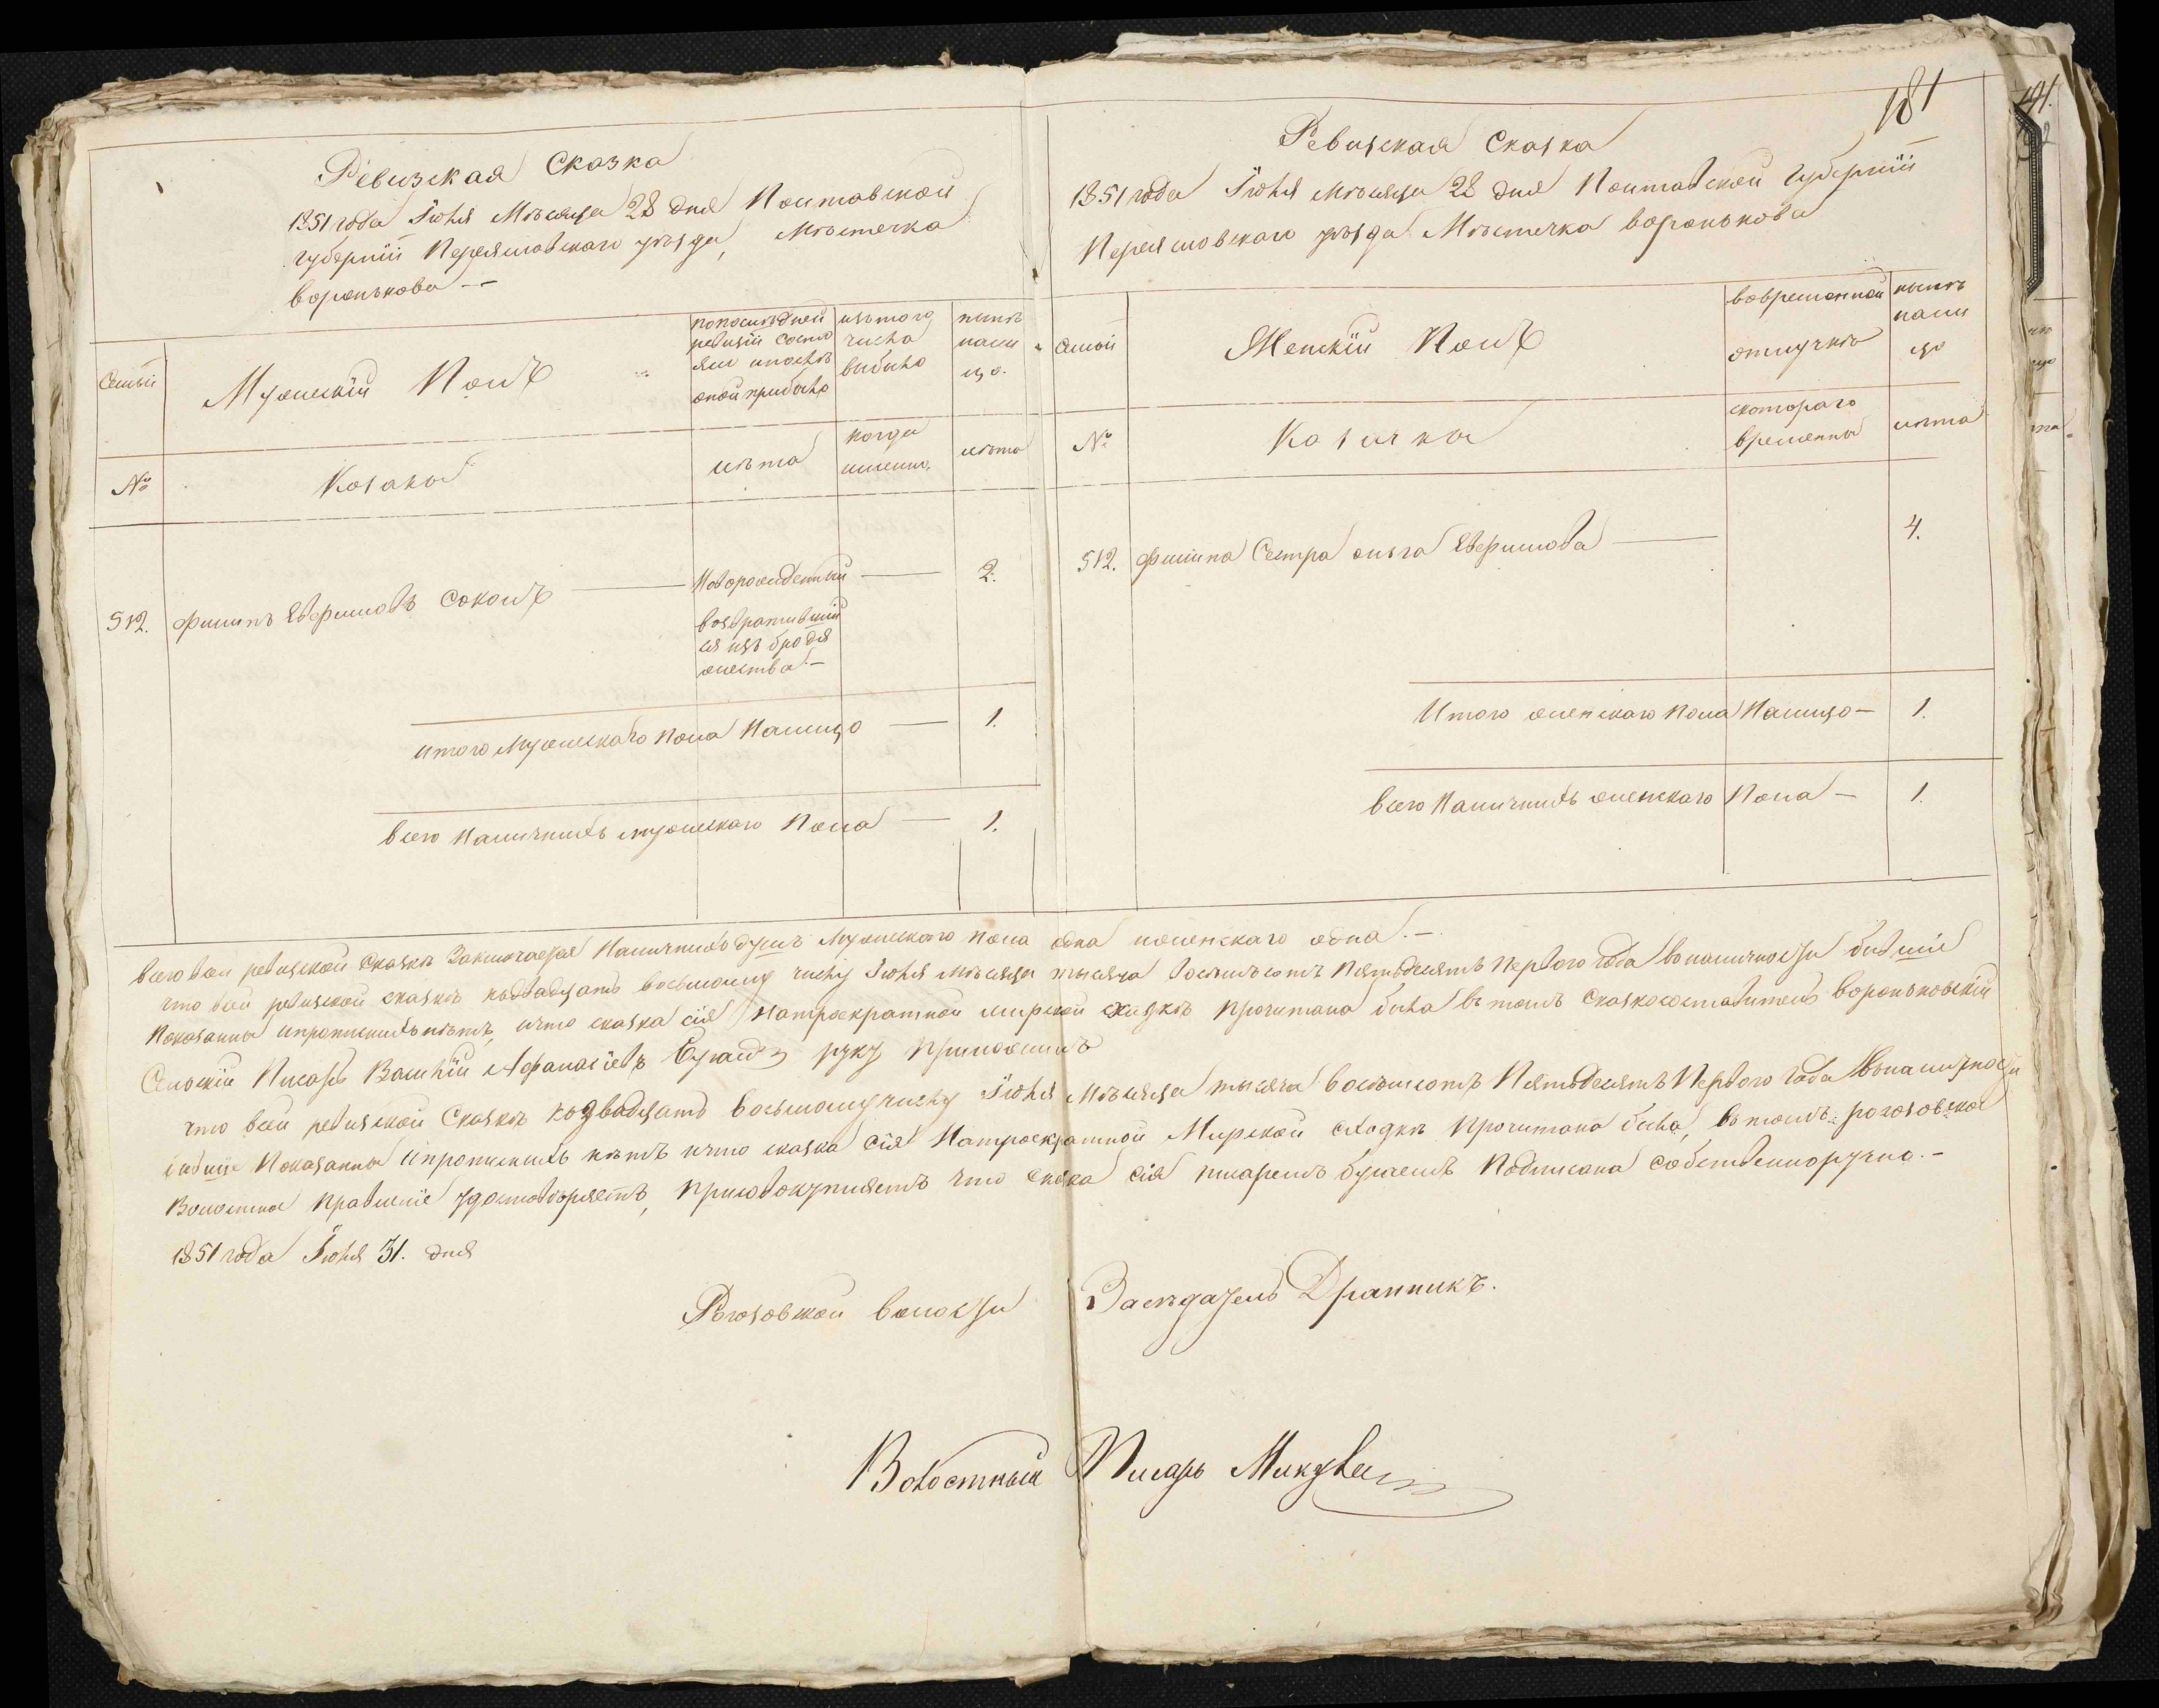 181
Ревизская Сказка
1851 года Іюня Мѣсяца 28 дня Полтавской
губерніи Переясловскаго уѣзда, Мѣстечка
воронькова --
Семьи
Мужескій Полъ
попослѣдней
ревизіи состо
ялъ ипослѣ
оной прибыло
изътого
числа
выбыло
нынѣ
нали
цо.
№
Козаки
лѣта
когда
именно.
лѣта
512. Филипъ Евфимовъ Соколъ — Новорожденный — 2.
возвратившій
ся изъ бродя
жества. -
итого Мужескаго пола Налицо — 1.
всего Наличныхъ мужескаго Пола — 1.
Ревизская Сказка
1851 года Іюня мѣсяца 28 дня Полтавской губерніи
Переясловскаго уѣзда Мѣстечка воронькова
Семьи
Женскій Полъ
вовременной
отлучкѣ
нынѣ
нали
цо
№
Козачки
скотораго
времени
лѣта
512. Филипа Сестра ольга Евфимова — 4.
Итого женскаго пола Налицо - 1.
всего Наличныхъ женскаго Пола - 1.
всего всей ревизской сказкѣ Заключается Наличныхъ душъ Мужескаго пола одна иженскаго одна. -
что всей ревизской сказкѣ кодвадцать восьмому числу Іюня мѣсяца тысяча восемьсотъ Пятьдесятъ Перваго года вналичности бывшіе
Показаны ипрописныхъ нѣтъ, ичто сказка сія Натроекратной мирской сходкѣ прочитана была въ томъ Сказкосоставитель вороньковскій
Сельскій Писарь Василій Афанасіевъ руку приложилъ
что всей ревизской Сказкѣ кодвадцать восьмому числу Іюня Мѣсяца тысяча восемьсотъ Пятьдесятъ Перваго года вналичности
бывшіе Показаны ипрописныхъ нѣтъ ичто сказка сія Натроекратной Мирской сходкѣ Прочитана была, въ томъ рогозовское
Волостное Правленіе удостовѣряетъ, присовокупляетъ что сказка сія писаремъ Подписана собственноручно. -
1851 года Іюня 31. дня
Рогозовской волости Засѣдатель Дранникъ.
Волостный Писарь